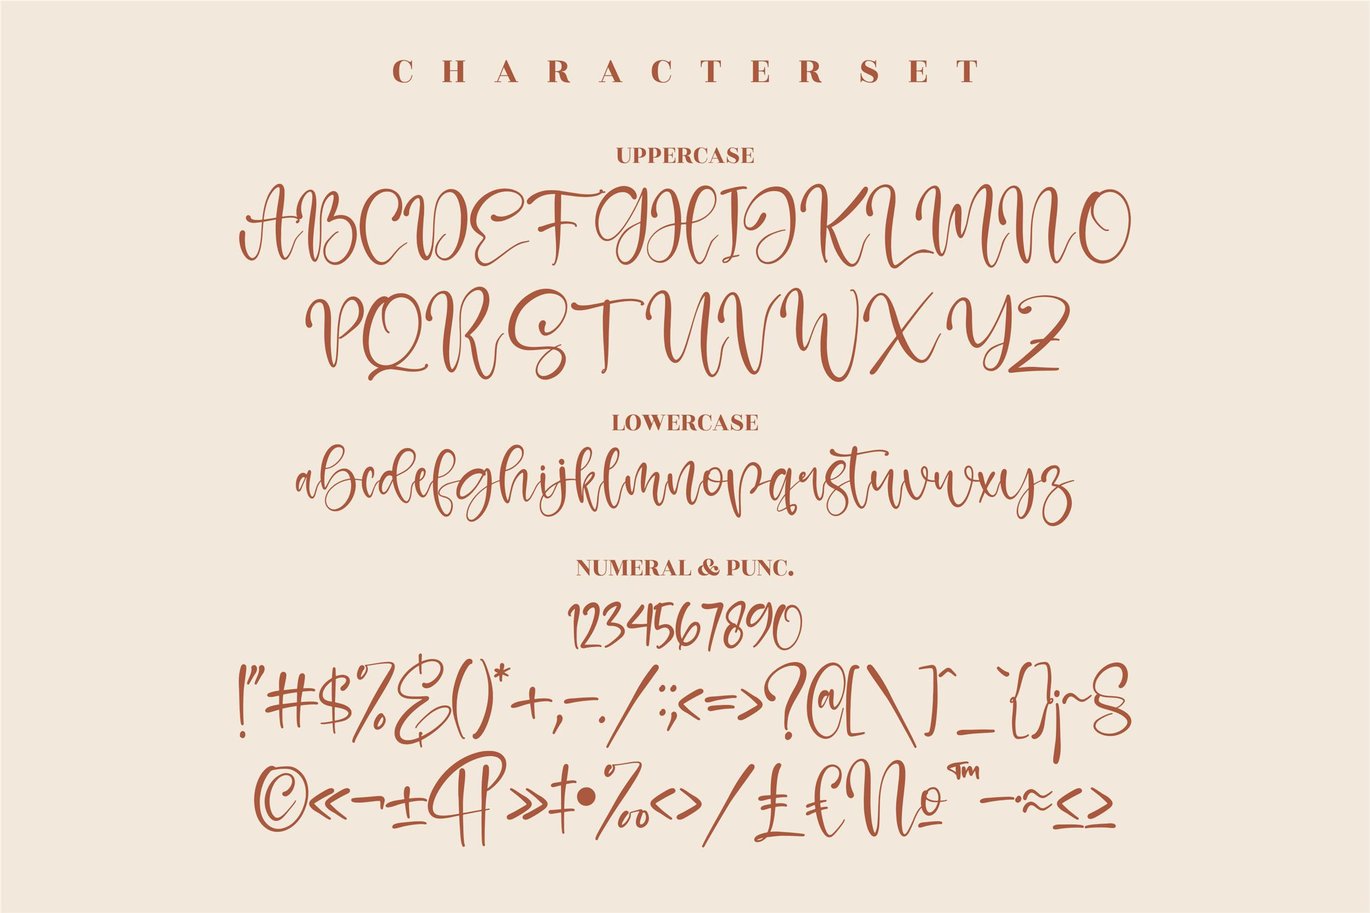 CHARACTER SET
UPPERCASE
ABCDEFGHIJKLMNO
PQRSTUVWXYZ
LOWERCASE
abcdefghijklmnopqrstuvwxyz
NUMERAL & PUNC.
1234567890
!"#$%&()*+,-./:;<=>?@[\]^_`{}¡~§
©«¬±¶»‡•‰‹›⁄£€№™—·≈≤≥